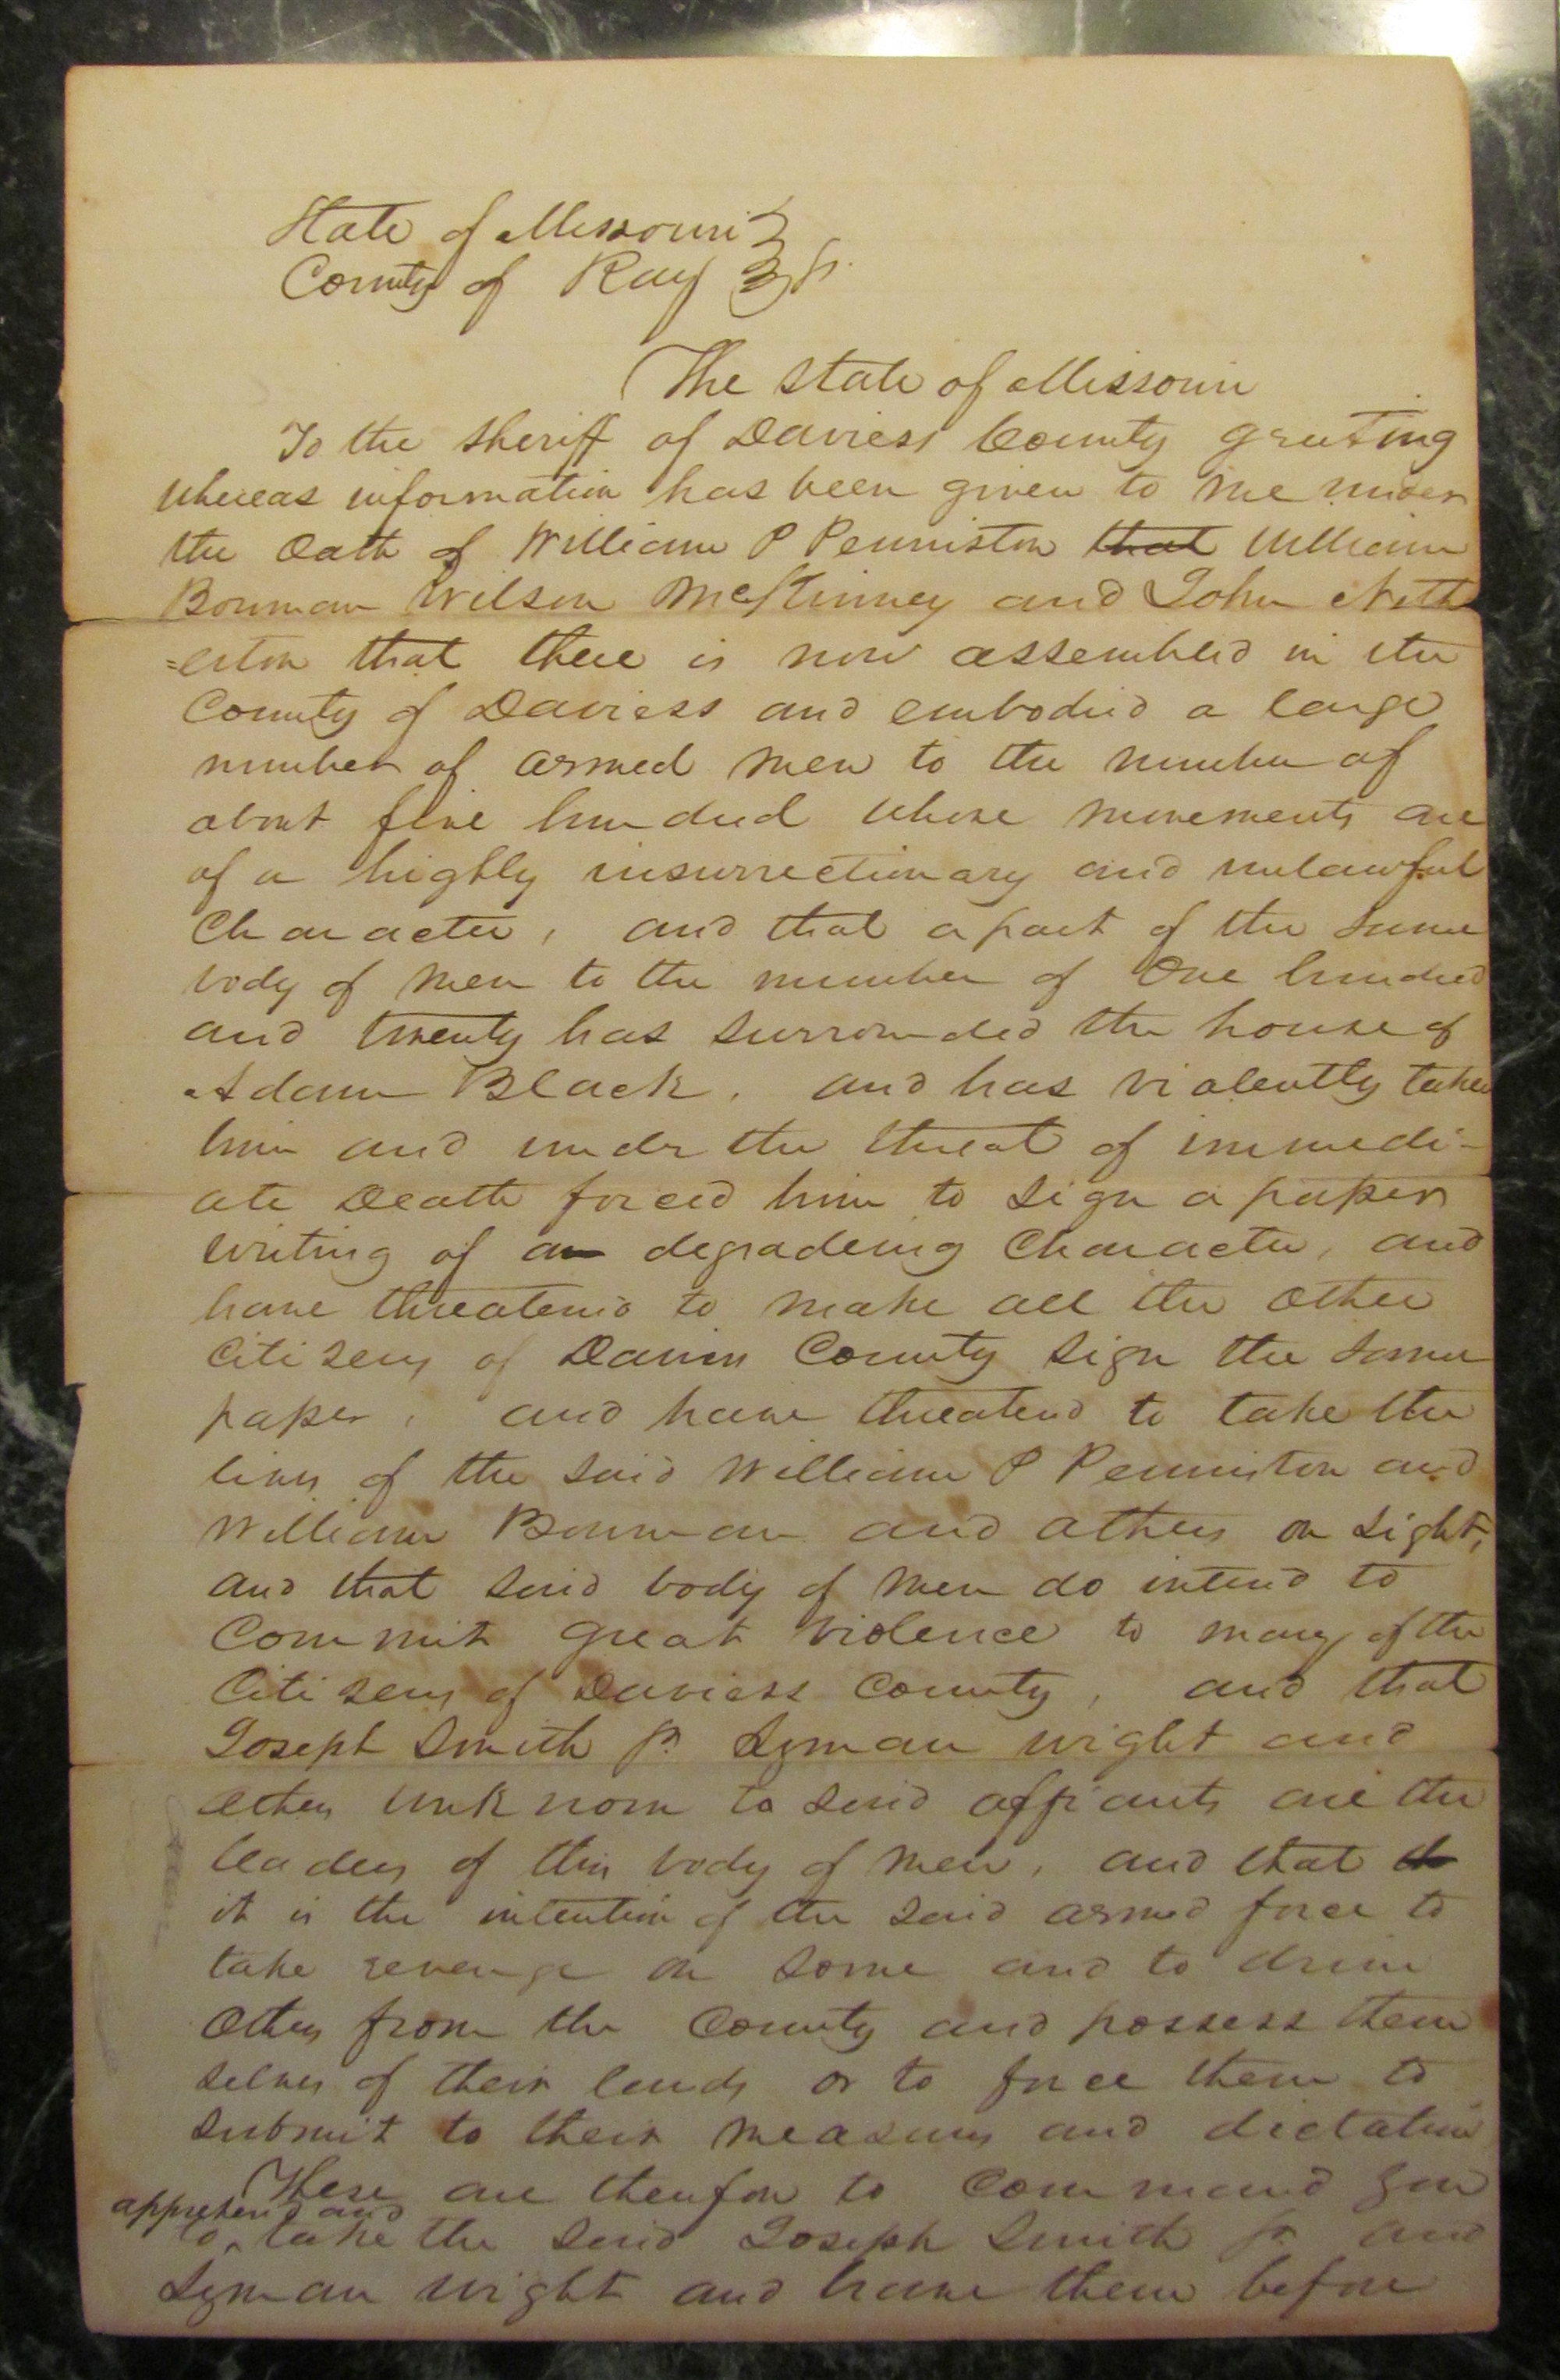 State of Missouri }
County of Ray } ss.
The State of Missouri
To the Sheriff of Daviess County greeting
Whereas information has been given to me under
the Oath of William P Penniston that William
Bowman Wilson McKinney and John Neth
=erton that there is now assembled in the
County of Daviess and embodied a large
number of armed men to the number of
about five hundred whose movements are
of a highly insurrectionary and unlawful
Character, and that a part of the same
body of men to the number of One hundred
and twenty has surrounded the house of
Adam Black, and has violently taken
him and under the threat of immedi-
ate Death forced him to sign a paper
writing of a degradeing Character, and
have threatened to make all the other
Citizens of Daviess County sign the same
paper, and have threatend to take the
lives of the said William P Penniston and
William Bowman and others on sight,
and that said body of men do intend to
Commit great violence to many of the
Citizens of Daviess County, and that
Joseph Smith jr. Lyman wight and
others unknown to said affiants are the
leaders of this body of men, and that th
it is the intention of the said armed force to
take revenge on some and to drive
others from the County and possess them
selves of their lands or to force them to
submit to their measures and dictation
These are therefore to Command you
apprehend and
to ‸ take the said Joseph Smith jr. and
Lyman wight and have them before